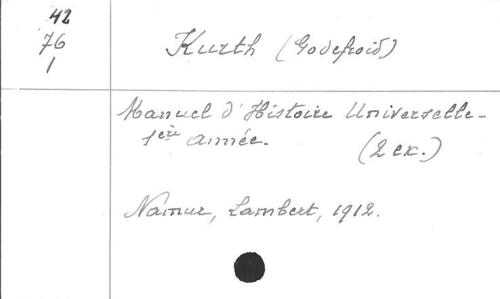 42
76
1
Kurth (Godefroid)
Manuel d'Histoire Universelle-
1ère année.
(2 ex.)
Namur, Lambert, 1912.